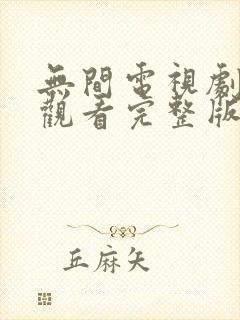 無間電視劇
觀看完整版
丘麻矢